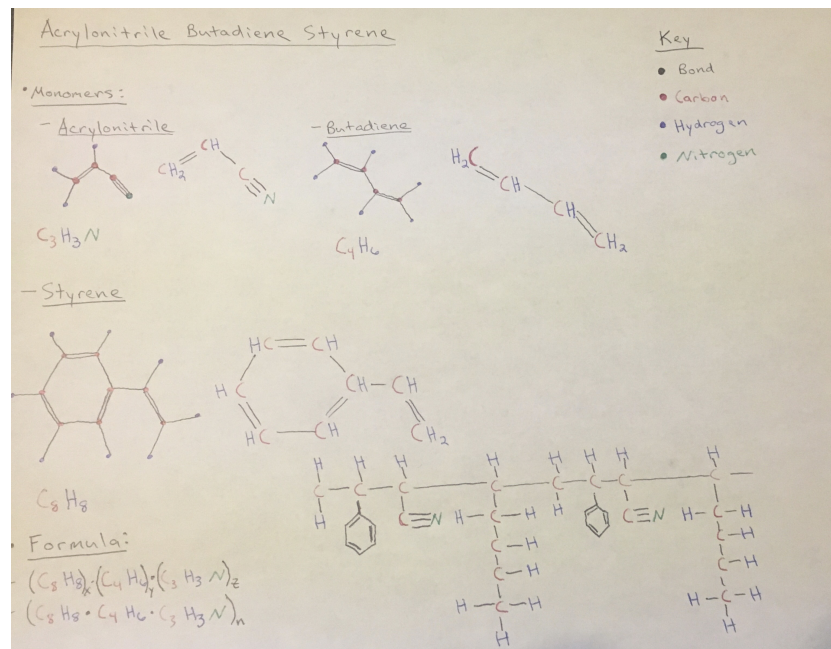 Acrylonitrile Butadiene Styrene
Key
• Bond
• Carbon
• Hydrogen
• Nitrogen
• Monomers:
- Acrylonitrile
CH2
CH
C
N
C3H3N
- Butadiene
H2C
CH
CH
CH2
C4H6
- Styrene
HC CH
HC CH-CH
HC CH CH2
C8H8
H H H H H H H H
C-C-C C C-C-C C
H C≡N H-C-H H C≡N H-C-H
C-H C-H
C-H C-H
H-C-H H-C-H
H H
• Formula:
- (C8H8)x·(C4H6)y·(C3H3N)z
- (C8H8·C4H6·C3H3N)n